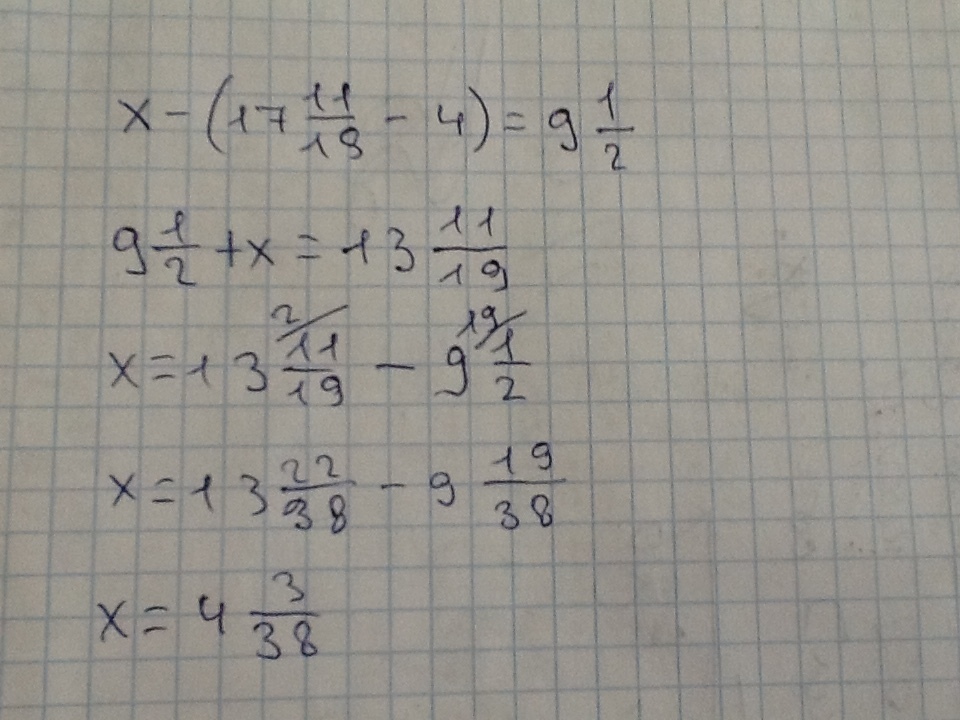 x - (17 11/19 - 4) = 9 1/2
9 1/2 + x = 13 11/19
x = 13 2/ 11/19 - 9 19/ 1/2
x = 13 22/38 - 9 19/38
x = 4 3/38